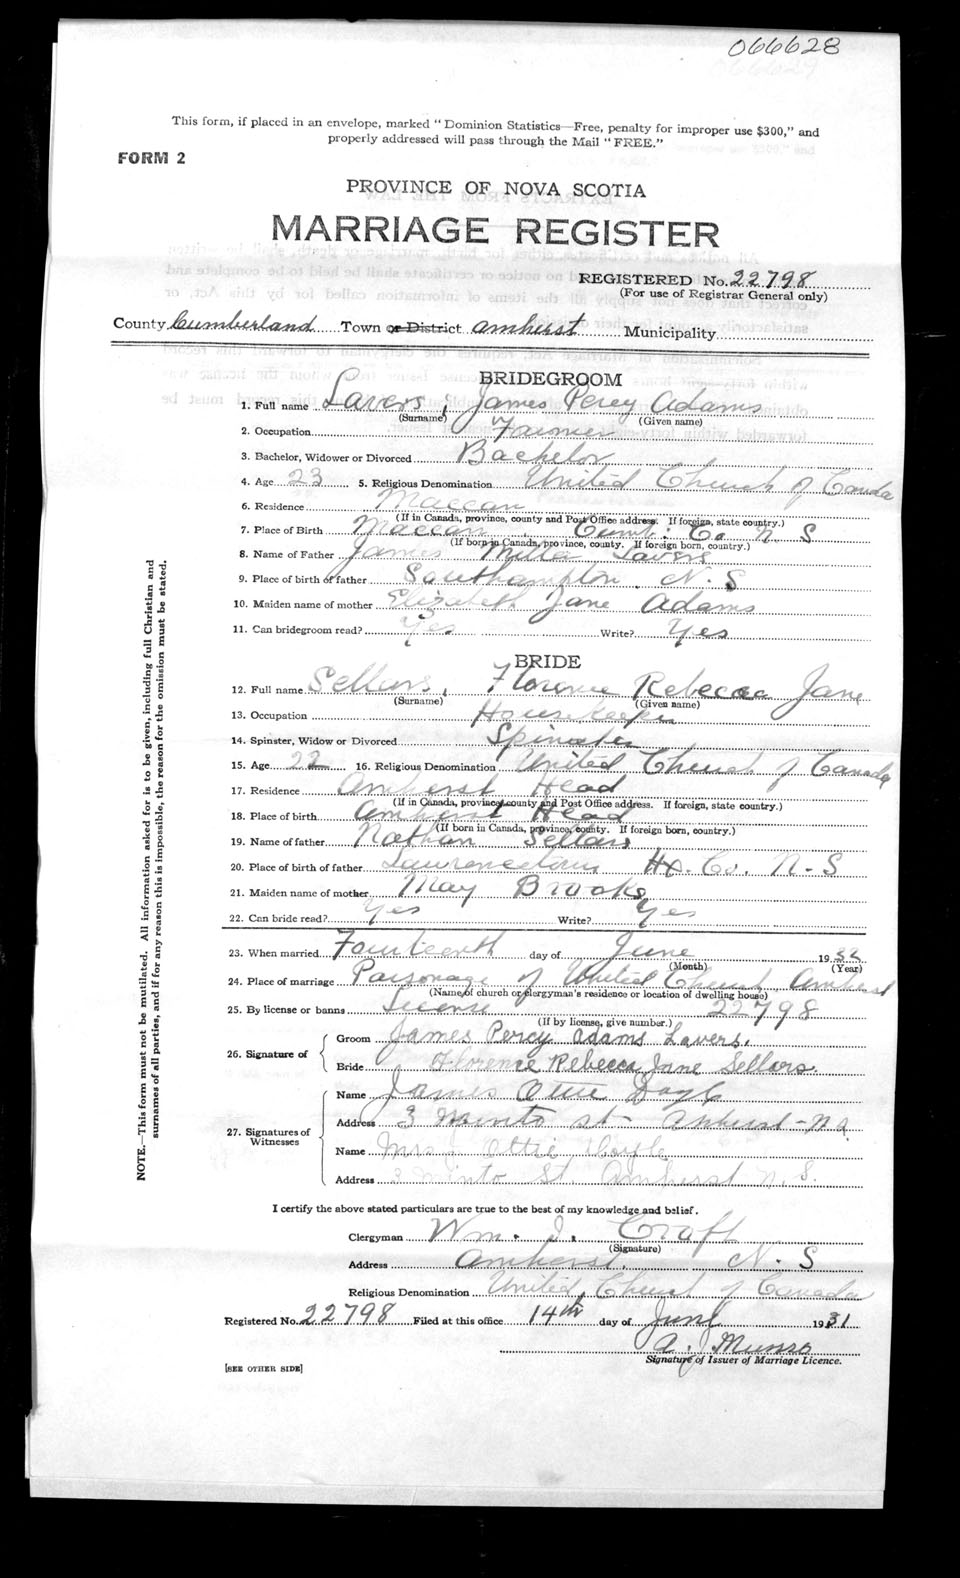 066628
This form, if placed in an envelope, marked "Dominion Statistics—Free, penalty for improper use $300," and
properly addressed will pass through the Mail "FREE."
FORM 2
PROVINCE OF NOVA SCOTIA
MARRIAGE REGISTER
REGISTERED No. 22798
(For use of Registrar General only)
County Cumberland Town or District Amherst Municipality
BRIDEGROOM
1. Full name Lavers, James Percy Adams
(Surname) (Given name)
2. Occupation Farmer
3. Bachelor, Widower or Divorced Bachelor
4. Age 23 5. Religious Denomination United Church of Canada
6. Residence Maccan
(If in Canada, province, county and Post Office address. If foreign, state country.)
7. Place of Birth Maccan Cum. Co. N S
(If born in Canada, province, county. If foreign born, country.)
8. Name of Father James Lavers
9. Place of birth of father Southampton N.S
10. Maiden name of mother Elizabeth Jane Adams
11. Can bridegroom read? Yes Write? Yes
BRIDE
12. Full name Sellars, Florence Rebecca Jane
(Surname) (Given name)
13. Occupation Housekeeper
14. Spinster, Widow or Divorced Spinster
15. Age 22 16. Religious Denomination United Church of Canada
17. Residence Amherst Head
(If in Canada, province, county and Post Office address. If foreign, state country.)
18. Place of birth Amherst Head
(If born in Canada, province, county. If foreign born, country.)
19. Name of father Nathan Sellars
20. Place of birth of father Lawrencetown Hx. Co. N-S
21. Maiden name of mother May Brooks
22. Can bride read? Yes Write? Yes
23. When married Fourteenth day of June 1932
(Month) (Year)
24. Place of marriage Parsonage of United Church Amherst
(Name of church or clergyman's residence or location of dwelling house)
25. By license or banns License 22798
(If by license, give number.)
26. Signature of Groom James Percy Adams Lavers.
Bride Florence Rebecca Jane Sellars.
27. Signatures of Witnesses
Name James
Address 3 Minto st - Amherst - N.S.
Name Mrs Ottie Doyle
Address 3 Minto St. Amherst N.S.
I certify the above stated particulars are true to the best of my knowledge and belief.
Clergyman Wm. J. Croft
(Signature)
Address Amherst. N.S
Religious Denomination United Church of Canada
Registered No. 22798 Filed at this office 14th day of June 1931
A. J. Munro
Signature of Issuer of Marriage Licence.
[SEE OTHER SIDE]
NOTE.—This form must not be mutilated. All information asked for is to be given, including full Christian and
surnames of all parties, and if for any reason this is impossible, the reason for the omission must be stated.